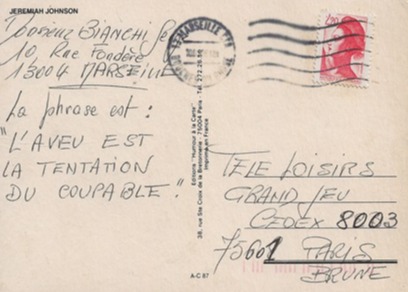 JEREMIAH JOHNSON
Monsieur BIANCHI
10 Rue Fondère
13004 MARSEILLE
La phrase est :
"L'AVEU EST
LA TENTATION
DU COUPABLE."
Editions "Humour à la Carte"
38, rue Ste Croix de la Bretonnerie - 75004 Paris - Tel. 272.26.56
Imprimé en France
A-C 87
MARSEILLE
2,20
TELE LOISIRS
GRAND JEU
CEDEX 8003
75661 PARIS
BRUNE